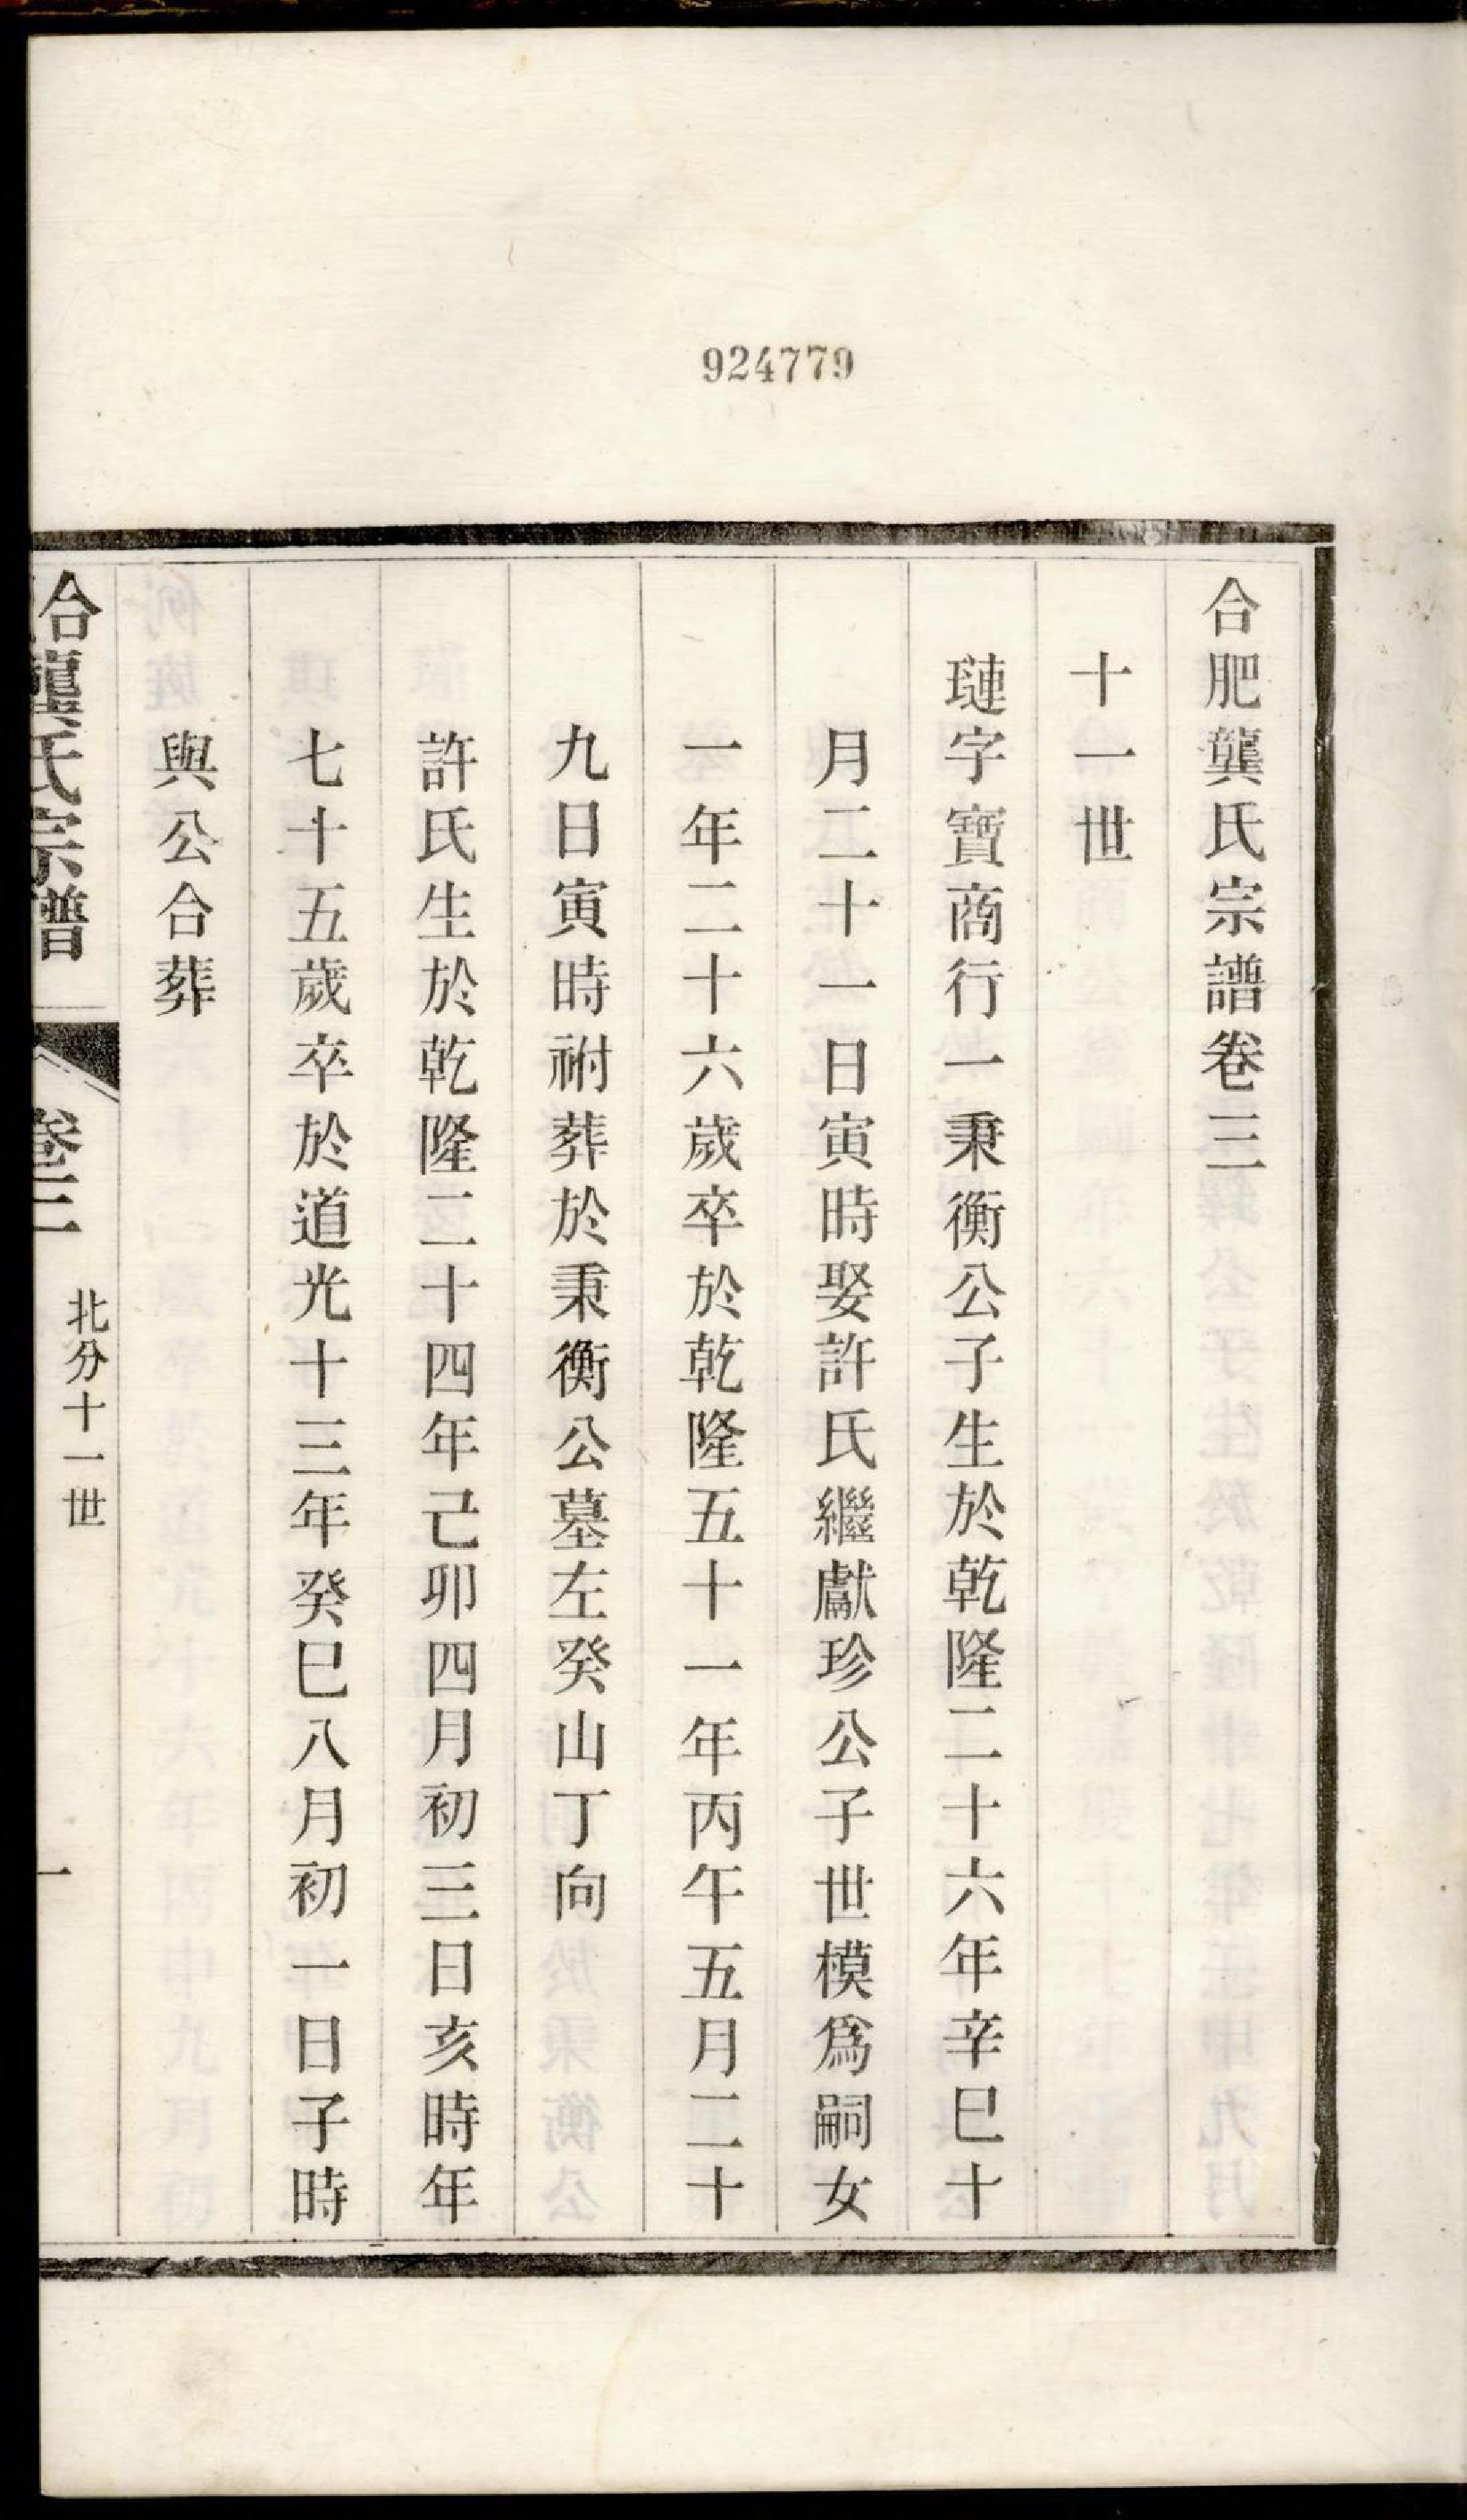 924779
合肥龔氏宗譜卷三
十一世
璉字寶商行一秉衡公子生於乾隆二十六年辛巳十
月二十一日寅時娶許氏繼獻珍公子世模爲嗣女
一年二十六歲卒於乾隆五十一年丙午五月二十
九日寅時祔葬於秉衡公墓左癸山丁向
許氏生於乾隆二十四年己卯四月初三日亥時年
七十五歲卒於道光十三年癸巳八月初一日子時
與公合葬
合龔氏宗譜
卷三
北分十一世
一